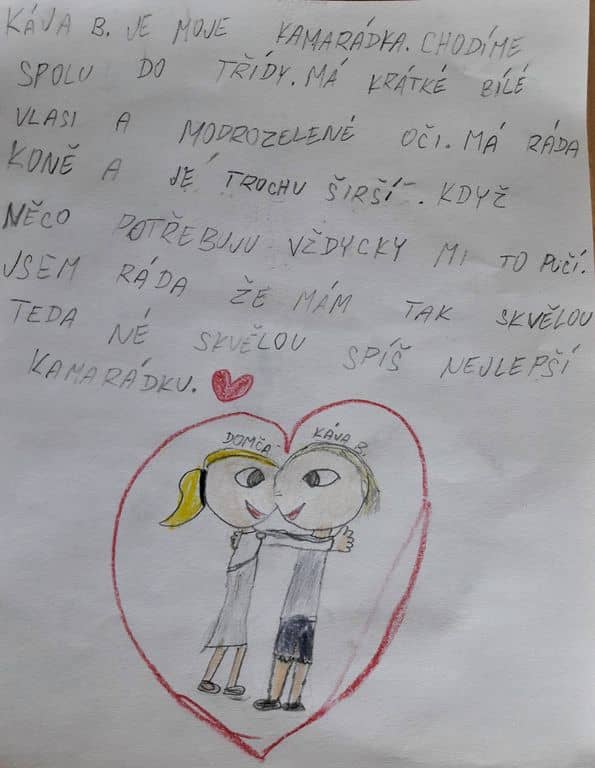 KÁVA B. JE MOJE KAMARÁDKA. CHODÍME
SPOLU DO TŘÍDY. MÁ KRÁTKÉ BÍLÉ
VLASI A MODROZELENÉ OČI. MÁ RÁDA
KONĚ A JE TROCHU ŠIRŠÍ. KDYŽ
NĚCO POTŘEBUJU VŽDYCKY MI TO PUČÍ.
JSEM RÁDA ŽE MÁM TAK SKVĚLOU
TEDA NÉ SKVĚLOU SPÍŠ NEJLEPŠÍ
KAMARÁDKU.
DOMČA KÁVA B.